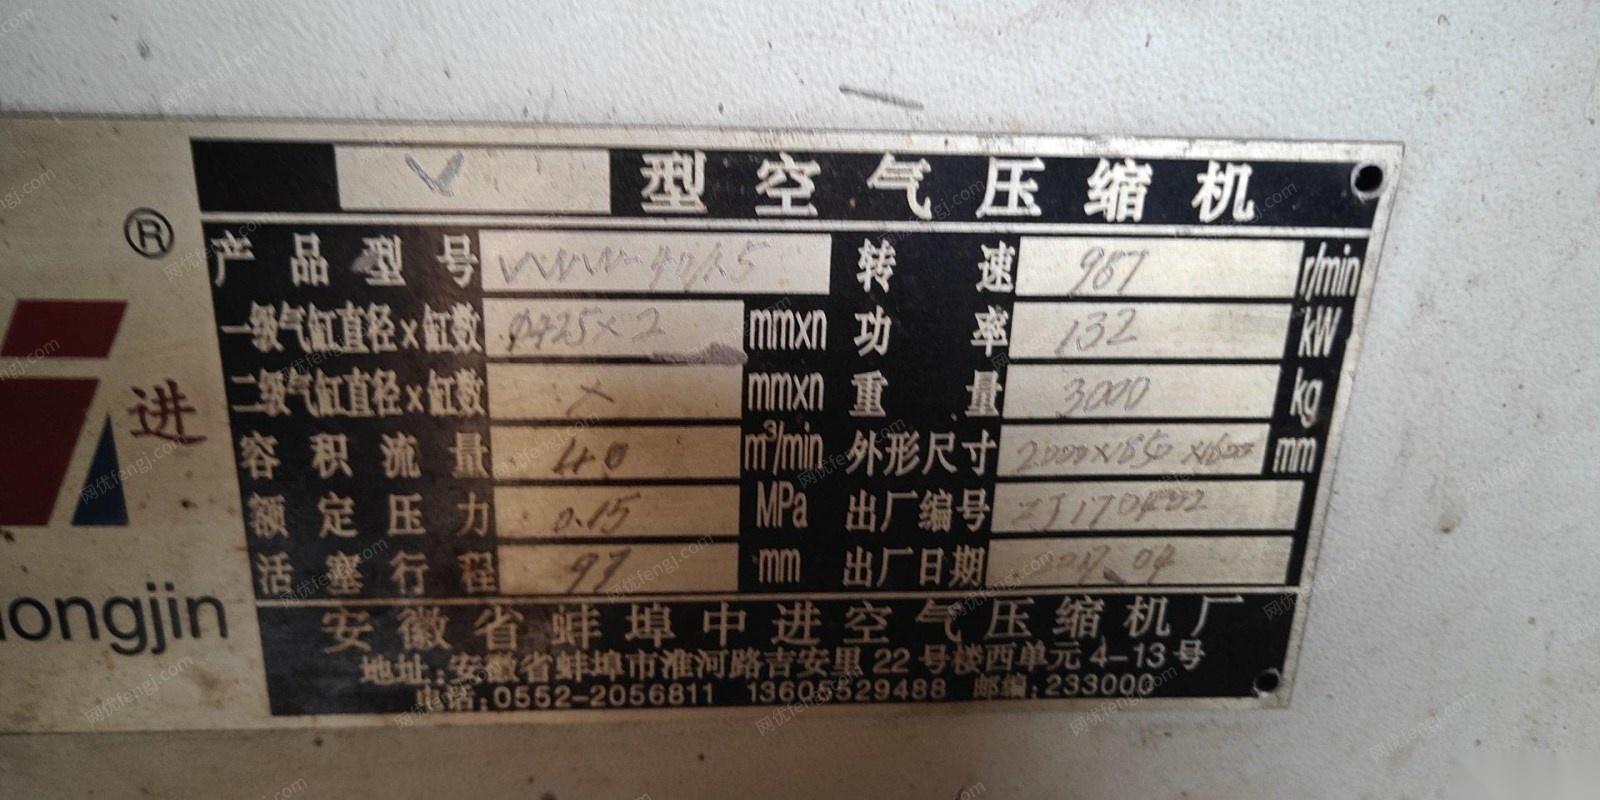 V 型空气压缩机
®
产品型号 转速 987 r/min
一级气缸直径×缸数 φ425×2 mm×n 功率 132 kW
二级气缸直径×缸数 × mm×n 重量 3000 kg
进
容积流量 40 m³/min 外形尺寸 2000×1850×1600 mm
额定压力 0.15 MPa 出厂编号
活塞行程 97 mm 出厂日期 2017.04
ongjin
安徽省蚌埠中进空气压缩机厂
地址:安徽省蚌埠市淮河路吉安里22号楼西单元4-13号
电话:0552-2056811 13605529488 邮编:233000
网优fengj.com